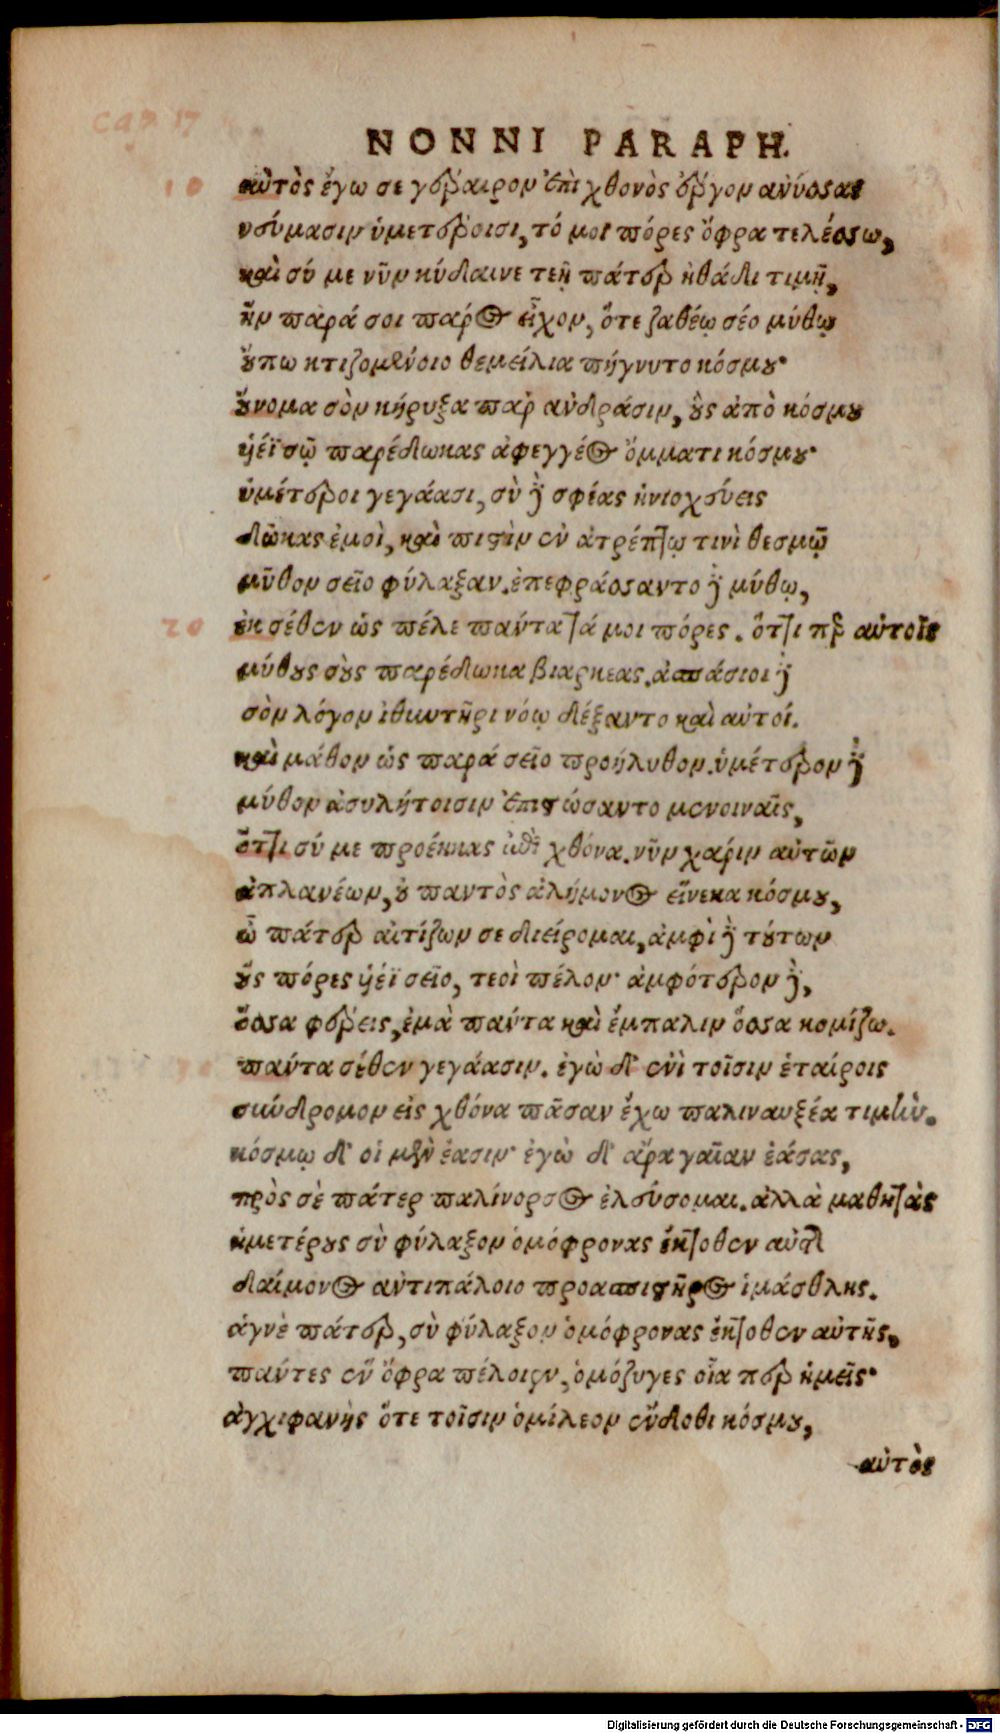 cap 17
NONNI PARAPH.
10 αὐτὸς ἐγω σε γέραιρον ἐπὶ χθονὸς ἔργον ἀνύσσας
νεύμασιν ὑμετέροισι, τό μοι πόρες ὄφρα τελέσσω,
καὶ σύ με νῦν κύδαινε τεῇ πάτερ ἠθάδι τιμῇ,
ἣν παρά σοι πάρος εἶχον, ὅτε ζαθέῳ σέο μύθῳ
οὔπω κτιζομένοιο θεμείλια πήγνυτο κόσμου·
οὔνομα σὸν κήρυξα παρ ἀνδράσιν, οὓς ἀπὸ κόσμου
υἱέϊ σῷ παρέδωκας ἀφεγγέος ὄμματι κόσμου·
ὑμέτεροι γεγάασι, σὺ δὲ σφέας ἡνιοχεύεις
δῶκας ἐμοὶ, καὶ πιστὶν ἐν ἀτρέπτῳ τινὶ θεσμῷ
μῦθον σεῖο φύλαξαν. ἐπεφράσσαντο δὲ μύθῳ,
20 ἐκ σέθεν ὡς πέλε πάντα τά μοι πόρες. ὅττι περ αὐτοῖς
μύθους σοὺς παρέδωκα βιαρκεας. ἀσπάσιοι δὲ
σὸν λόγον ἰθυντῆρι νόῳ δέξαντο καὶ αὐτοί.
καὶ μάθον ὡς παρά σεῖο προήλυθον. ὑμέτερον δὲ
μύθον ἀσυλήτοισιν ἐπιστώσαντο μενοιναῖς,
ὅττι σύ με προέηκας ἐπὶ χθόνα. νῦν χάριν αὐτῶν
ἀπλανέων, οὐ παντὸς ἀλήμονος εἵνεκα κόσμου,
ὦ πάτερ αἰτίζων σε διείρομαι, ἀμφὶ δὲ τούτων
οὓς πόρες υἱέϊ σεῖο, τεοὶ πέλον· ἀμφότερον δὲ,
ὅσσα φέρεις, ἐμὰ πάντα καὶ ἔμπαλιν ὅσσα κομίζω.
πάντα σέθεν γεγάασιν. ἐγὼ δ' ἐνὶ τοῖσιν ἑταίροις
σύνδρομον εἰς χθόνα πᾶσαν ἔχω παλιναυξέα τιμὴν.
κόσμῳ δ' οἱ μὲν ἔασιν· ἐγὼ δ' ἄρα γαῖαν ἐάσας,
πρὸς σὲ πάτερ παλίνορσος ἐλεύσομαι. ἀλλὰ μαθητὰς
ἡμετέρους σὺ φύλαξον ὁμόφρονας ἔκτοθεν αὐτῆς
δαίμονος ἀντιπάλοιο προασπιστῆρος ἱμάσθλης.
ἁγνὲ πάτερ, σὺ φύλαξον ὁμόφρονας ἔκτοθεν αὐτῆς,
πάντες ἓν ὄφρα πέλοιεν, ὁμόζυγες οἷα περ ἡμεῖς·
ἀγχιφανὴς ὅτε τοῖσιν ὁμίλεον ἔνδοθι κόσμου,
αὐτὸς
Digitalisierung gefördert durch die Deutsche Forschungsgemeinschaft - DFG